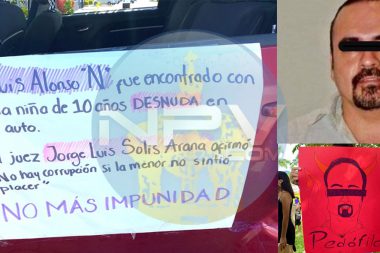 uis Alonso "N" fue encontrado con
a niña de 10 años DESNUDA en
auto.
l juez Jorge Luis Solis Arana afirmó
"No hay corrupción si la menor no sintió
placer"
NO MÁS IMPUNIDAD
NPV
.COM
Pedófilo